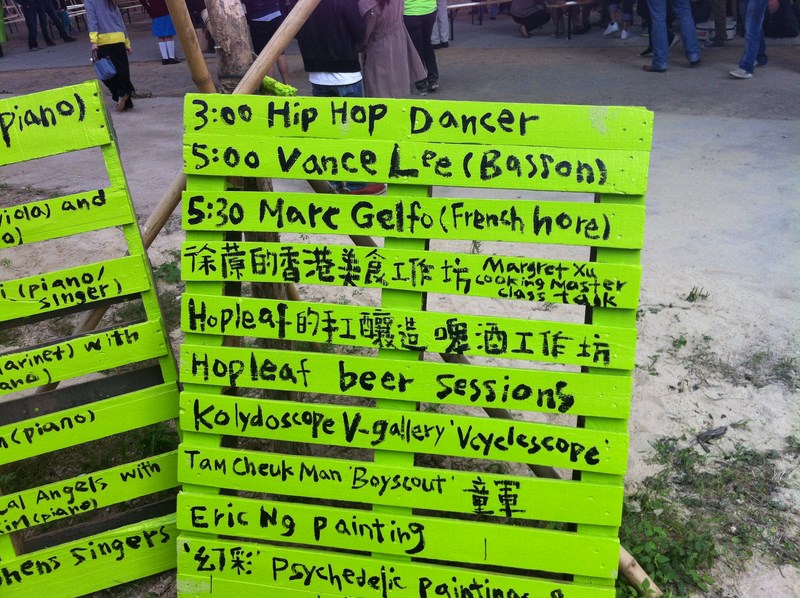 piano)
and
(piano/
singer)
with
(piano)
Angels with
(piano)
singers
3:00 Hip Hop Dancer
5:00 Vance Lee (Basson)
5:30 Marc Gelfo (French hore)
徐蒝的香港美食工作坊 Margret Xu
cooking Master
class talk
Hopleaf的手工釀造 啤酒工作坊
Hopleaf beer sessions
Kolydoscope V-gallery 'Vcyclescope'
Tam Cheuk Man 'Boyscout' 童軍
Eric Ng painting
'幻彩' Psychedelic painting